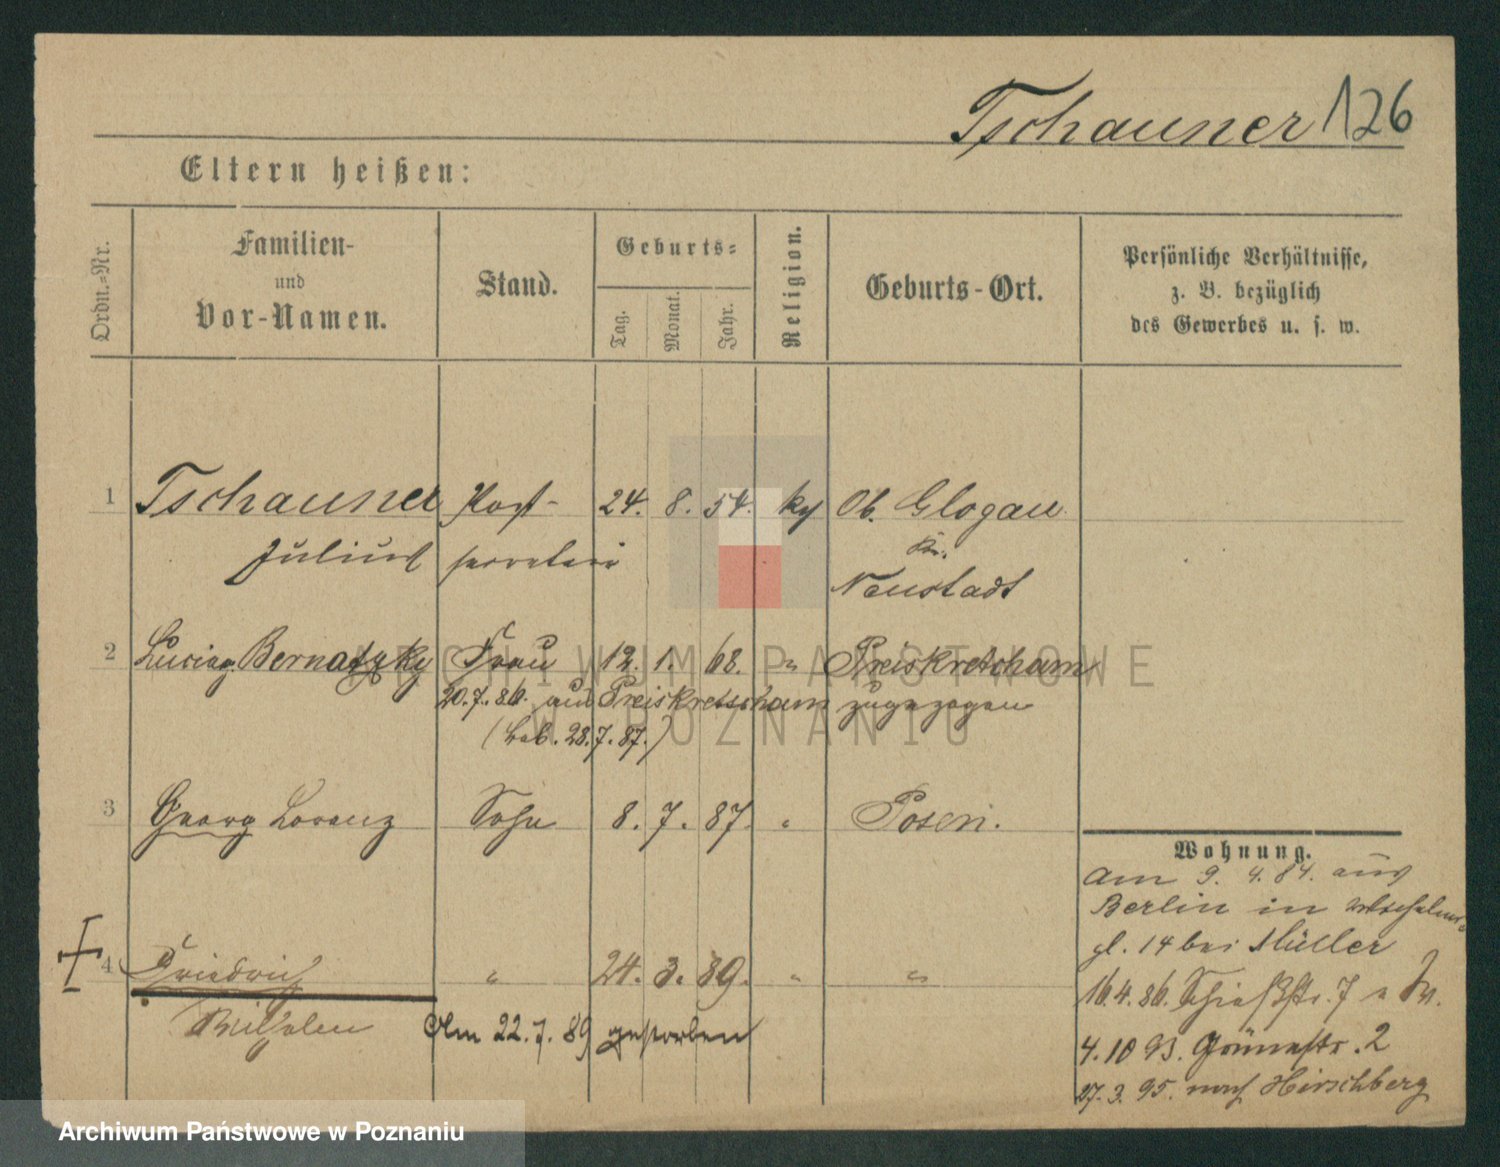 Tschauner 126
Eltern heißen:
Ordn.-Nr.
Familien-
und
Vor-Namen.
Stand.
Geburts-
Tag.
Monat.
Jahr.
Religion.
Geburts-Ort.
Persönliche Verhältnisse,
z. B. bezüglich
des Gewerbes u. s. w.
1 Tschauner Post- 24. 8. 54. Ob. Glogau
Julius
Neustadt
2 Bernatzky Frau 12. 1. 68. " Preiskretcham
20.7.86. aus Preiskretscham zugezogen
28.7.87.)
3 Georg Lorenz Sohn 8. 7. 87. " Posen.
Wohnung.
Am 9. 4. 84. aus
Berlin in
14 bei Müller
4 Friedrich " 24. 3. 89. " "
16.4.86. Schießstr. 7
Wilhelm Am 22.7.89 gestorben
4.10 93. 2
27.3.95. nach Hirschberg
ARCHIWUM PAŃSTWOWE
W POZNANIU
Archiwum Państwowe w Poznaniu